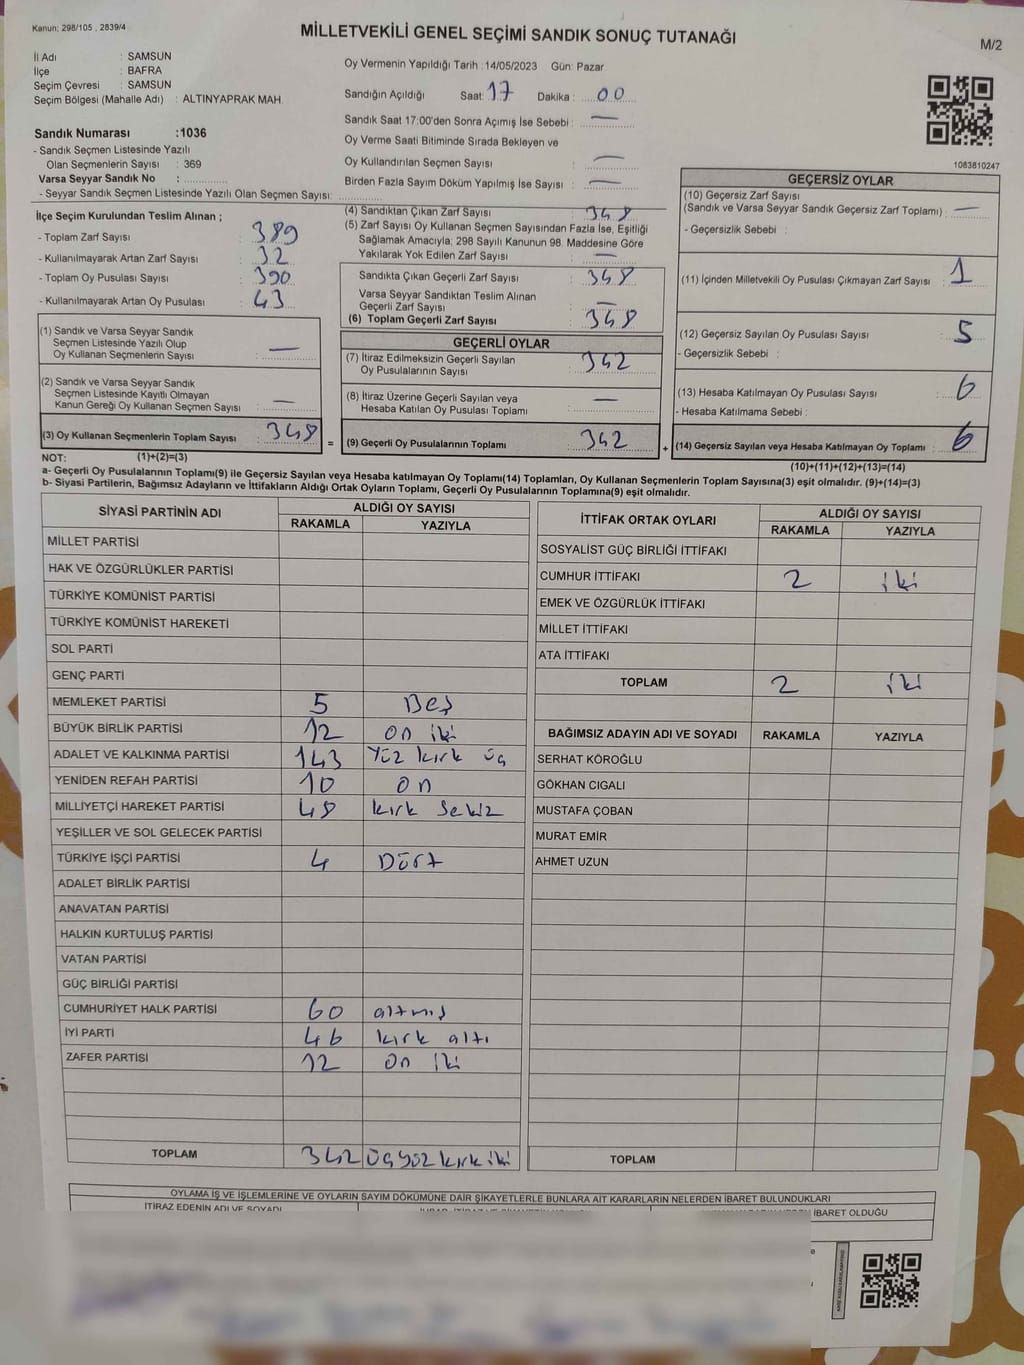 Kanun: 298/105 , 2839/4
MİLLETVEKİLİ GENEL SEÇİMİ SANDIK SONUÇ TUTANAĞI
M/2
İl Adı : SAMSUN
İlçe : BAFRA
Seçim Çevresi : SAMSUN
Seçim Bölgesi (Mahalle Adı) : ALTINYAPRAK MAH.
Oy Vermenin Yapıldığı Tarih :14/05/2023 Gün: Pazar
Sandığın Açıldığı Saat: 17 Dakika : 00
Sandık Saat 17:00'den Sonra Açımış İse Sebebi : —
Oy Verme Saati Bitiminde Sırada Bekleyen ve
Oy Kullandırılan Seçmen Sayısı : —
Birden Fazla Sayım Döküm Yapılmış İse Sayısı : —
1083810247
Sandık Numarası :1036
- Sandık Seçmen Listesinde Yazılı
Olan Seçmenlerin Sayısı : 369
Varsa Seyyar Sandık No :
- Seyyar Sandık Seçmen Listesinde Yazılı Olan Seçmen Sayısı:
İlçe Seçim Kurulundan Teslim Alınan ;
- Toplam Zarf Sayısı : 389
- Kullanılmayarak Artan Zarf Sayısı : 32
- Toplam Oy Pusulası Sayısı : 390
- Kullanılmayarak Artan Oy Pusulası : 43
(1) Sandık ve Varsa Seyyar Sandık
Seçmen Listesinde Yazılı Olup
Oy Kullanan Seçmenlerin Sayısı : —
(2) Sandık ve Varsa Seyyar Sandık
Seçmen Listesinde Kayıtlı Olmayan
Kanun Gereği Oy Kullanan Seçmen Sayısı : —
(3) Oy Kullanan Seçmenlerin Toplam Sayısı : 348
(4) Sandıktan Çıkan Zarf Sayısı : 348
(5) Zarf Sayısı Oy Kullanan Seçmen Sayısından Fazla İse, Eşitliği
Sağlamak Amacıyla, 298 Sayılı Kanunun 98. Maddesine Göre
Yakılarak Yok Edilen Zarf Sayısı : —
Sandıkta Çıkan Geçerli Zarf Sayısı : 348
Varsa Seyyar Sandıktan Teslim Alınan
Geçerli Zarf Sayısı : —
(6) Toplam Geçerli Zarf Sayısı : 348
GEÇERLİ OYLAR
(7) İtiraz Edilmeksizin Geçerli Sayılan
Oy Pusulalarının Sayısı : 342
(8) İtiraz Üzerine Geçerli Sayılan veya
Hesaba Katılan Oy Pusulası Toplamı : —
= (9) Geçerli Oy Pusulalarının Toplamı : 342
GEÇERSİZ OYLAR
(10) Geçersiz Zarf Sayısı
(Sandık ve Varsa Seyyar Sandık Geçersiz Zarf Toplamı) : —
- Geçersizlik Sebebi :
(11) İçinden Milletvekili Oy Pusulası Çıkmayan Zarf Sayısı : 1
(12) Geçersiz Sayılan Oy Pusulası Sayısı : 5
- Geçersizlik Sebebi :
(13) Hesaba Katılmayan Oy Pusulası Sayısı : 6
- Hesaba Katılmama Sebebi :
+ (14) Geçersiz Sayılan veya Hesaba Katılmayan Oy Toplamı : 6
NOT: (1)+(2)=(3)
(10)+(11)+(12)+(13)=(14)
a- Geçerli Oy Pusulalarının Toplamı(9) ile Geçersiz Sayılan veya Hesaba katılmayan Oy Toplamı(14) Toplamları, Oy Kullanan Seçmenlerin Toplam Sayısına(3) eşit olmalıdır. (9)+(14)=(3)
b- Siyasi Partilerin, Bağımsız Adayların ve İttifakların Aldığı Ortak Oyların Toplamı, Geçerli Oy Pusulalarının Toplamına(9) eşit olmalıdır.
SİYASİ PARTİNİN ADI ALDIĞI OY SAYISI
RAKAMLA YAZIYLA
MİLLET PARTİSİ
HAK VE ÖZGÜRLÜKLER PARTİSİ
TÜRKİYE KOMÜNİST PARTİSİ
TÜRKİYE KOMÜNİST HAREKETİ
SOL PARTİ
GENÇ PARTİ
MEMLEKET PARTİSİ 5 Beş
BÜYÜK BİRLİK PARTİSİ 12 on iki
ADALET VE KALKINMA PARTİSİ 143 Yüz kırk üç
YENİDEN REFAH PARTİSİ 10 on
MİLLİYETÇİ HAREKET PARTİSİ 48 kırk sekiz
YEŞİLLER VE SOL GELECEK PARTİSİ
TÜRKİYE İŞÇİ PARTİSİ 4 Dört
ADALET BİRLİK PARTİSİ
ANAVATAN PARTİSİ
HALKIN KURTULUŞ PARTİSİ
VATAN PARTİSİ
GÜÇ BİRLİĞİ PARTİSİ
CUMHURİYET HALK PARTİSİ 60 altmış
İYİ PARTİ 46 kırk altı
ZAFER PARTİSİ 12 on iki
TOPLAM 342 üçyüz kırk iki
İTTİFAK ORTAK OYLARI ALDIĞI OY SAYISI
RAKAMLA YAZIYLA
SOSYALİST GÜÇ BİRLİĞİ İTTİFAKI
CUMHUR İTTİFAKI 2 iki
EMEK VE ÖZGÜRLÜK İTTİFAKI
MİLLET İTTİFAKI
ATA İTTİFAKI
TOPLAM 2 iki
BAĞIMSIZ ADAYIN ADI VE SOYADI RAKAMLA YAZIYLA
SERHAT KÖROĞLU
GÖKHAN CIGALI
MUSTAFA ÇOBAN
MURAT EMİR
AHMET UZUN
TOPLAM
OYLAMA İŞ VE İŞLEMLERİNE VE OYLARIN SAYIM DÖKÜMÜNE DAİR ŞİKAYETLERLE BUNLARA AİT KARARLARIN NELERDEN İBARET BULUNDUKLARI
İTİRAZ EDENİN ADI VE SOYADI
İBARET OLDUĞU